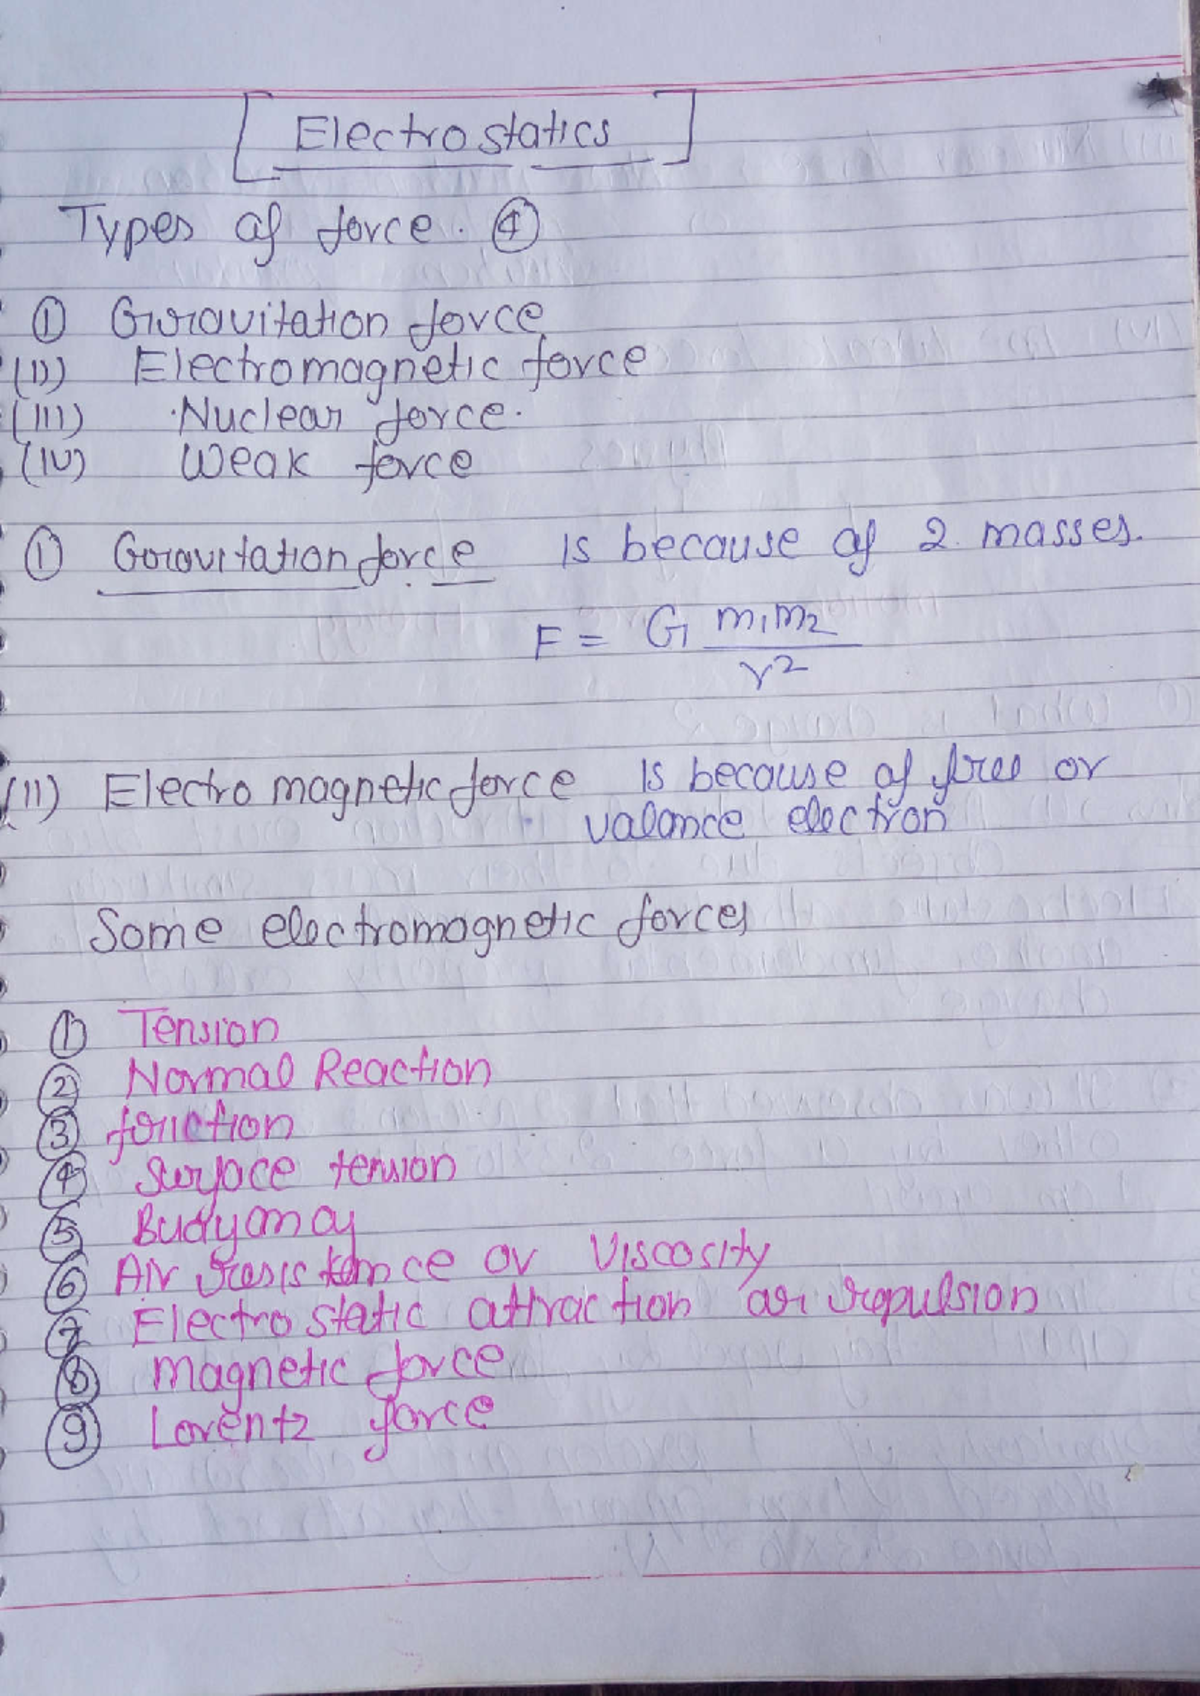 [Electrostatics]
Types of force. ④
① Gravitation force
(II) Electromagnetic force
(III) Nuclear force.
(IV) Weak force
① Gravitation force is because of 2 masses.
F = G m1m2
r2
(II) Electro magnetic force Is because of free or
valance electron
Some electromagnetic forces
① Tension
② Normal Reaction
③ friction
④ Surface tension
⑤ Buoyancy
⑥ Air resistance or Viscosity
⑦ Electrostatic attraction or repulsion
⑧ magnetic force
⑨ Lorentz force